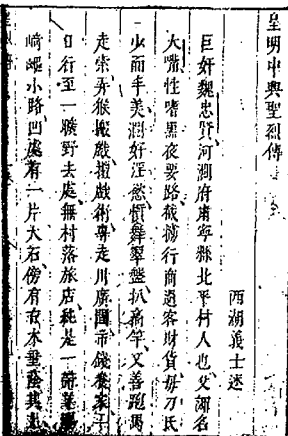 皇明中興聖烈傳
西湖義士述
巨奸魏忠賢河澗府肅寧縣北平村人也父諢名
大嘴性嗜黑夜要路截擄行商過客財貨毋刀氏
少而丰美淵好淫慾慣舞翠盤扒高竿又善跑馬
走索弄猴搬戲撮戲術專走川廣圖市錢養家一
日行至一曠野去處無村落旅店純是一帶
崎嶇小路凹處有一片大石傍有古木垂蔭其